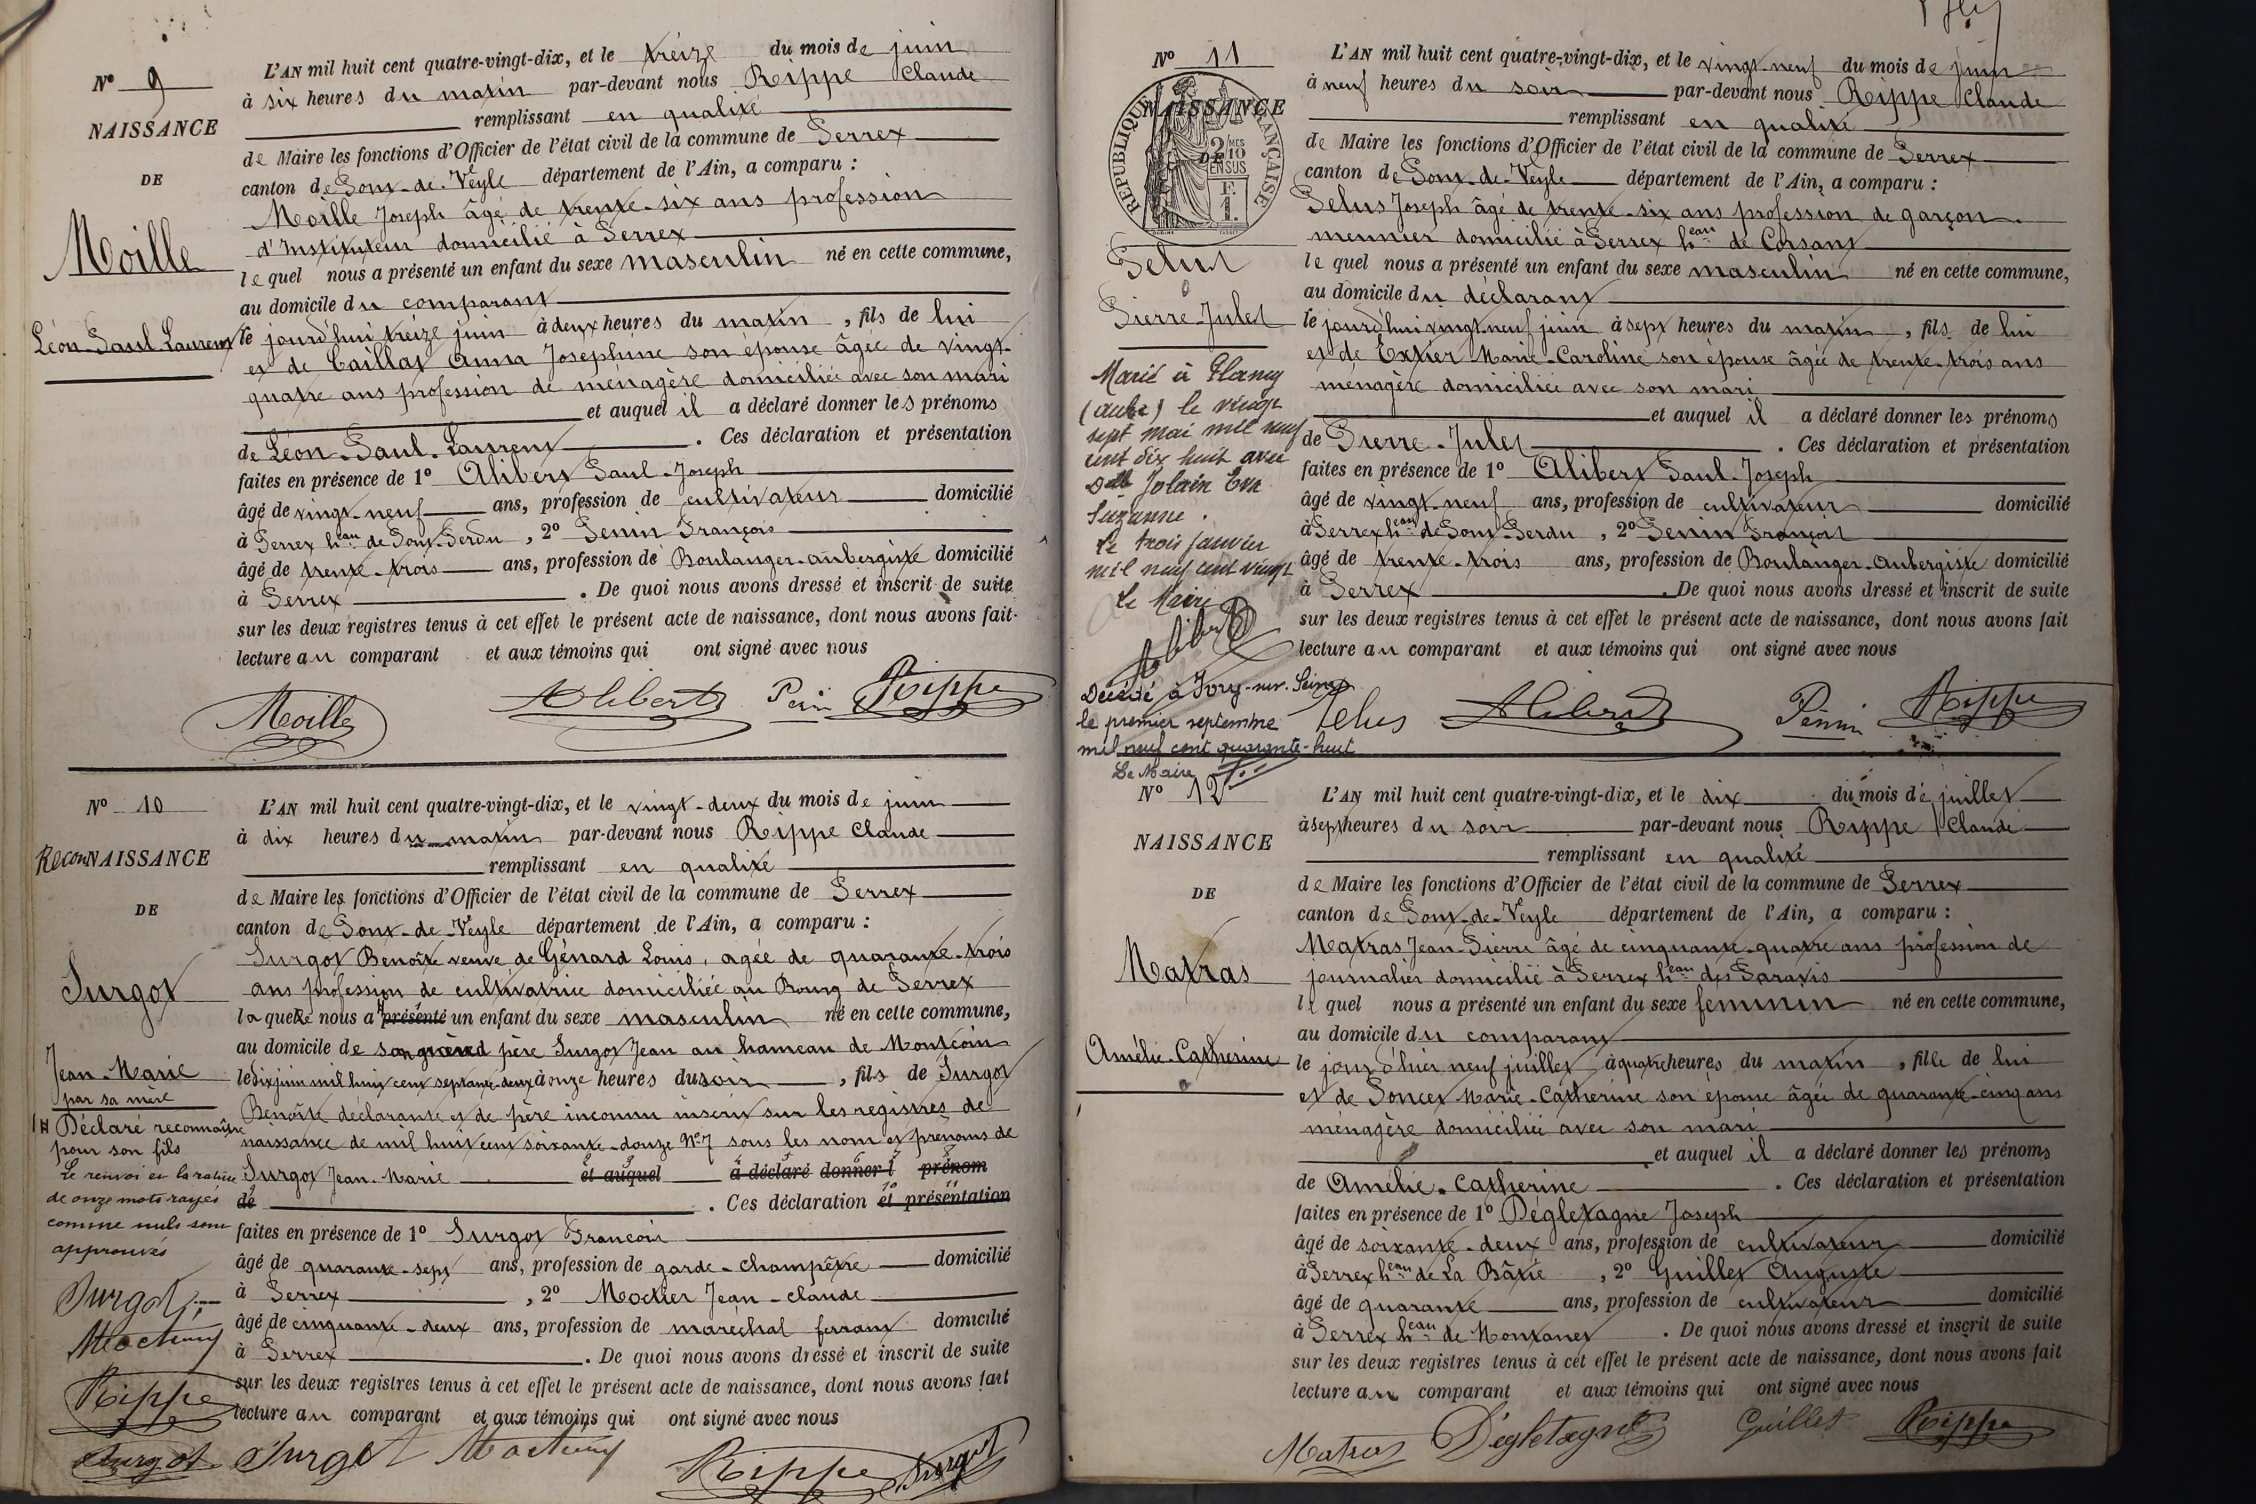 N° 9
NAISSANCE
DE
Moille
Léon-Paul-Laurent
L'AN mil huit cent quatre-vingt-dix, et le treize du mois de juin
à six heures du matin par-devant nous Rippe Claude
remplissant en qualité
de Maire les fonctions d'Officier de l'état civil de la commune de Perrex
canton de Pont-de-Veyle département de l'Ain, a comparu :
Moille Joseph âgé de trente-six ans profession
d'Instituteur domicilié à Perrex
lequel nous a présenté un enfant du sexe masculin né en cette commune,
au domicile du comparant
le jourd'hui treize juin à deux heures du matin, fils de lui
et de Caillat Anna Josephine son épouse âgée de vingt-
quatre ans profession de ménagère domiciliée avec son mari
et auquel il a déclaré donner les prénoms
de Léon-Paul-Laurent. Ces déclaration et présentation
faites en présence de 1° Alibert Paul-Joseph
âgé de vingt-neuf ans, profession de cultivateur domicilié
à Perrex heau de Pont-Perdu, 2° Penin François
âgé de trente-trois ans, profession de Boulanger-aubergiste domicilié
à Perrex. De quoi nous avons dressé et inscrit de suite
sur les deux registres tenus à cet effet le présent acte de naissance, dont nous avons fait
lecture au comparant et aux témoins qui ont signé avec nous
Moille Alibert Penin Rippe
N° 10
ReconNAISSANCE
DE
Surgot
Jean-Marie
par sa mère
H Déclaré reconnaître
pour son fils
Le renvoi et la rature
de onze mots rayés
comme nuls sont
approuvés
Surgot
Rippe
Surgot
L'AN mil huit cent quatre-vingt-dix, et le vingt-deux du mois de juin
à dix heures du matin par-devant nous Rippe Claude
remplissant en qualité
de Maire les fonctions d'Officier de l'état civil de la commune de Perrex
canton de Pont-de-Veyle département de l'Ain, a comparu :
Surgot Benoîte veuve de Génard Louis, agée de quarante-trois
ans profession de cultivatrice domiciliée au Bourg de Perrex
laquelle nous a H présenté un enfant du sexe masculin né en cette commune,
au domicile de son grand père Surgot Jean au hameau de Montcoin
le dix juin mil huit cent septante-deux à onze heures du soir, fils de Surgot
Benoîte déclarante et de père inconnu inscrit sur les registres de
naissance de mil huit cent soixante-douze N° 7 sous les nom et prénoms de
Surgot Jean-Marie et auquel a déclaré donner l prénom
de. Ces déclaration et présentation
faites en présence de 1° Surgot François
âgé de quarante-sept ans, profession de garde-champêtre domicilié
à Perrex, 2° Jean-Claude
âgé de cinquante-deux ans, profession de maréchal ferrant domicilié
à Perrex. De quoi nous avons dressé et inscrit de suite
sur les deux registres tenus à cet effet le présent acte de naissance, dont nous avons fait
lecture au comparant et aux témoins qui ont signé avec nous
Surgot Rippe Surgot
N° 11
NAISSANCE
DE
RÉPUBLIQUE FRANÇAISE
2 MES
10
EN SUS
F.
1.
Pelus
Pierre-Jules
Marié à Plancy
(aube) le vingt
sept mai mil neuf
cent dix huit avec
Delle Jolain Eva
Suzanne.
Le trois janvier
mil neuf cent vingt
Le Maire
Alibert
Décédé à Ivry-sur-Seine
le premier septembre
mil neuf cent quarante-huit
Le Maire
L'AN mil huit cent quatre-vingt-dix, et le vingt-neuf du mois de juin
à neuf heures du soir par-devant nous Rippe Claude
remplissant en qualité
de Maire les fonctions d'Officier de l'état civil de la commune de Perrex
canton de Pont-de-Veyle département de l'Ain, a comparu :
Pelus Joseph âgé de trente-six ans profession de garçon
meunier domicilié à Perrex heau de Corsant
lequel nous a présenté un enfant du sexe masculin né en cette commune,
au domicile du déclarant
le jourd'hui vingt-neuf juin à sept heures du matin, fils de lui
et de Extier Marie-Caroline son épouse âgée de trente-trois ans
ménagère domiciliée avec son mari
et auquel il a déclaré donner les prénoms
de Pierre-Jules. Ces déclaration et présentation
faites en présence de 1° Alibert Paul-Joseph
âgé de vingt-neuf ans, profession de cultivateur domicilié
à Perrex heau de Pont-Perdu, 2° Penin François
âgé de trente-trois ans, profession de Boulanger-Aubergiste domicilié
à Perrex. De quoi nous avons dressé et inscrit de suite
sur les deux registres tenus à cet effet le présent acte de naissance, dont nous avons fait
lecture au comparant et aux témoins qui ont signé avec nous
Pelus Alibert Penin Rippe
N° 12
NAISSANCE
DE
Matras
Amélie-Catherine
L'AN mil huit cent quatre-vingt-dix, et le dix du mois de juillet
à sept heures du soir par-devant nous Rippe Claude
remplissant en qualité
de Maire les fonctions d'Officier de l'état civil de la commune de Perrex
canton de Pont-de-Veyle département de l'Ain, a comparu :
Matras Jean-Pierre âgé de cinquante-quatre ans profession de
journalier domicilié à Perrex heau des Paravis
lequel nous a présenté un enfant du sexe féminin né en cette commune,
au domicile du comparant
le jour d'hier neuf juillet à quatre heures du matin, fille de lui
et de Poncet Marie-Catherine son épouse âgée de quarante-cinq ans
ménagère domiciliée avec son mari
et auquel il a déclaré donner les prénoms
de Amélie-Catherine. Ces déclaration et présentation
faites en présence de 1° Dégletagne Joseph
âgé de soixante-deux ans, profession de cultivateur domicilié
à Perrex heau de La Bâtie, 2° Guillet Auguste
âgé de quarante ans, profession de cultivateur domicilié
à Perrex heau de Montanet. De quoi nous avons dressé et inscrit de suite
sur les deux registres tenus à cet effet le présent acte de naissance, dont nous avons fait
lecture au comparant et aux témoins qui ont signé avec nous
Matras Dégletagne Guillet Rippe